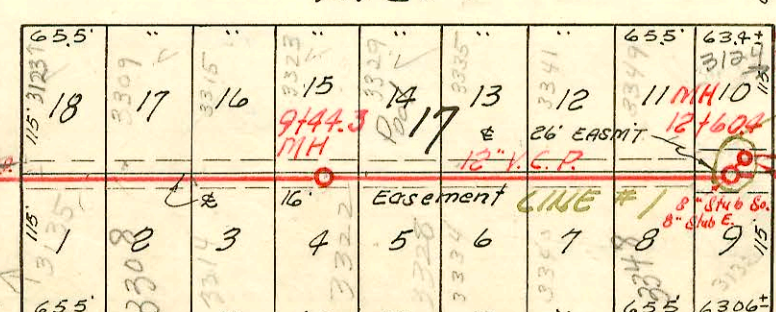 65.5' " " " " " " 65.5' 63.4±
3123½ 3309 3315 3323 3329 3335 3341 3349
18 17 16 15 14 13 12 11 10
115' 115'
17
Pool
9+44.3
MH
MH
12+60.4
℄ 26' EASM'T
12" V.C.P.
℄ 16' Easement LINE # 1
8" Stub So.
8" Stub E.
115' 115'
1 2 3 4 5 6 7 8 9
3135 3308 3314 3322 3328 3334 3348
65.5' 65.5' 63.06±